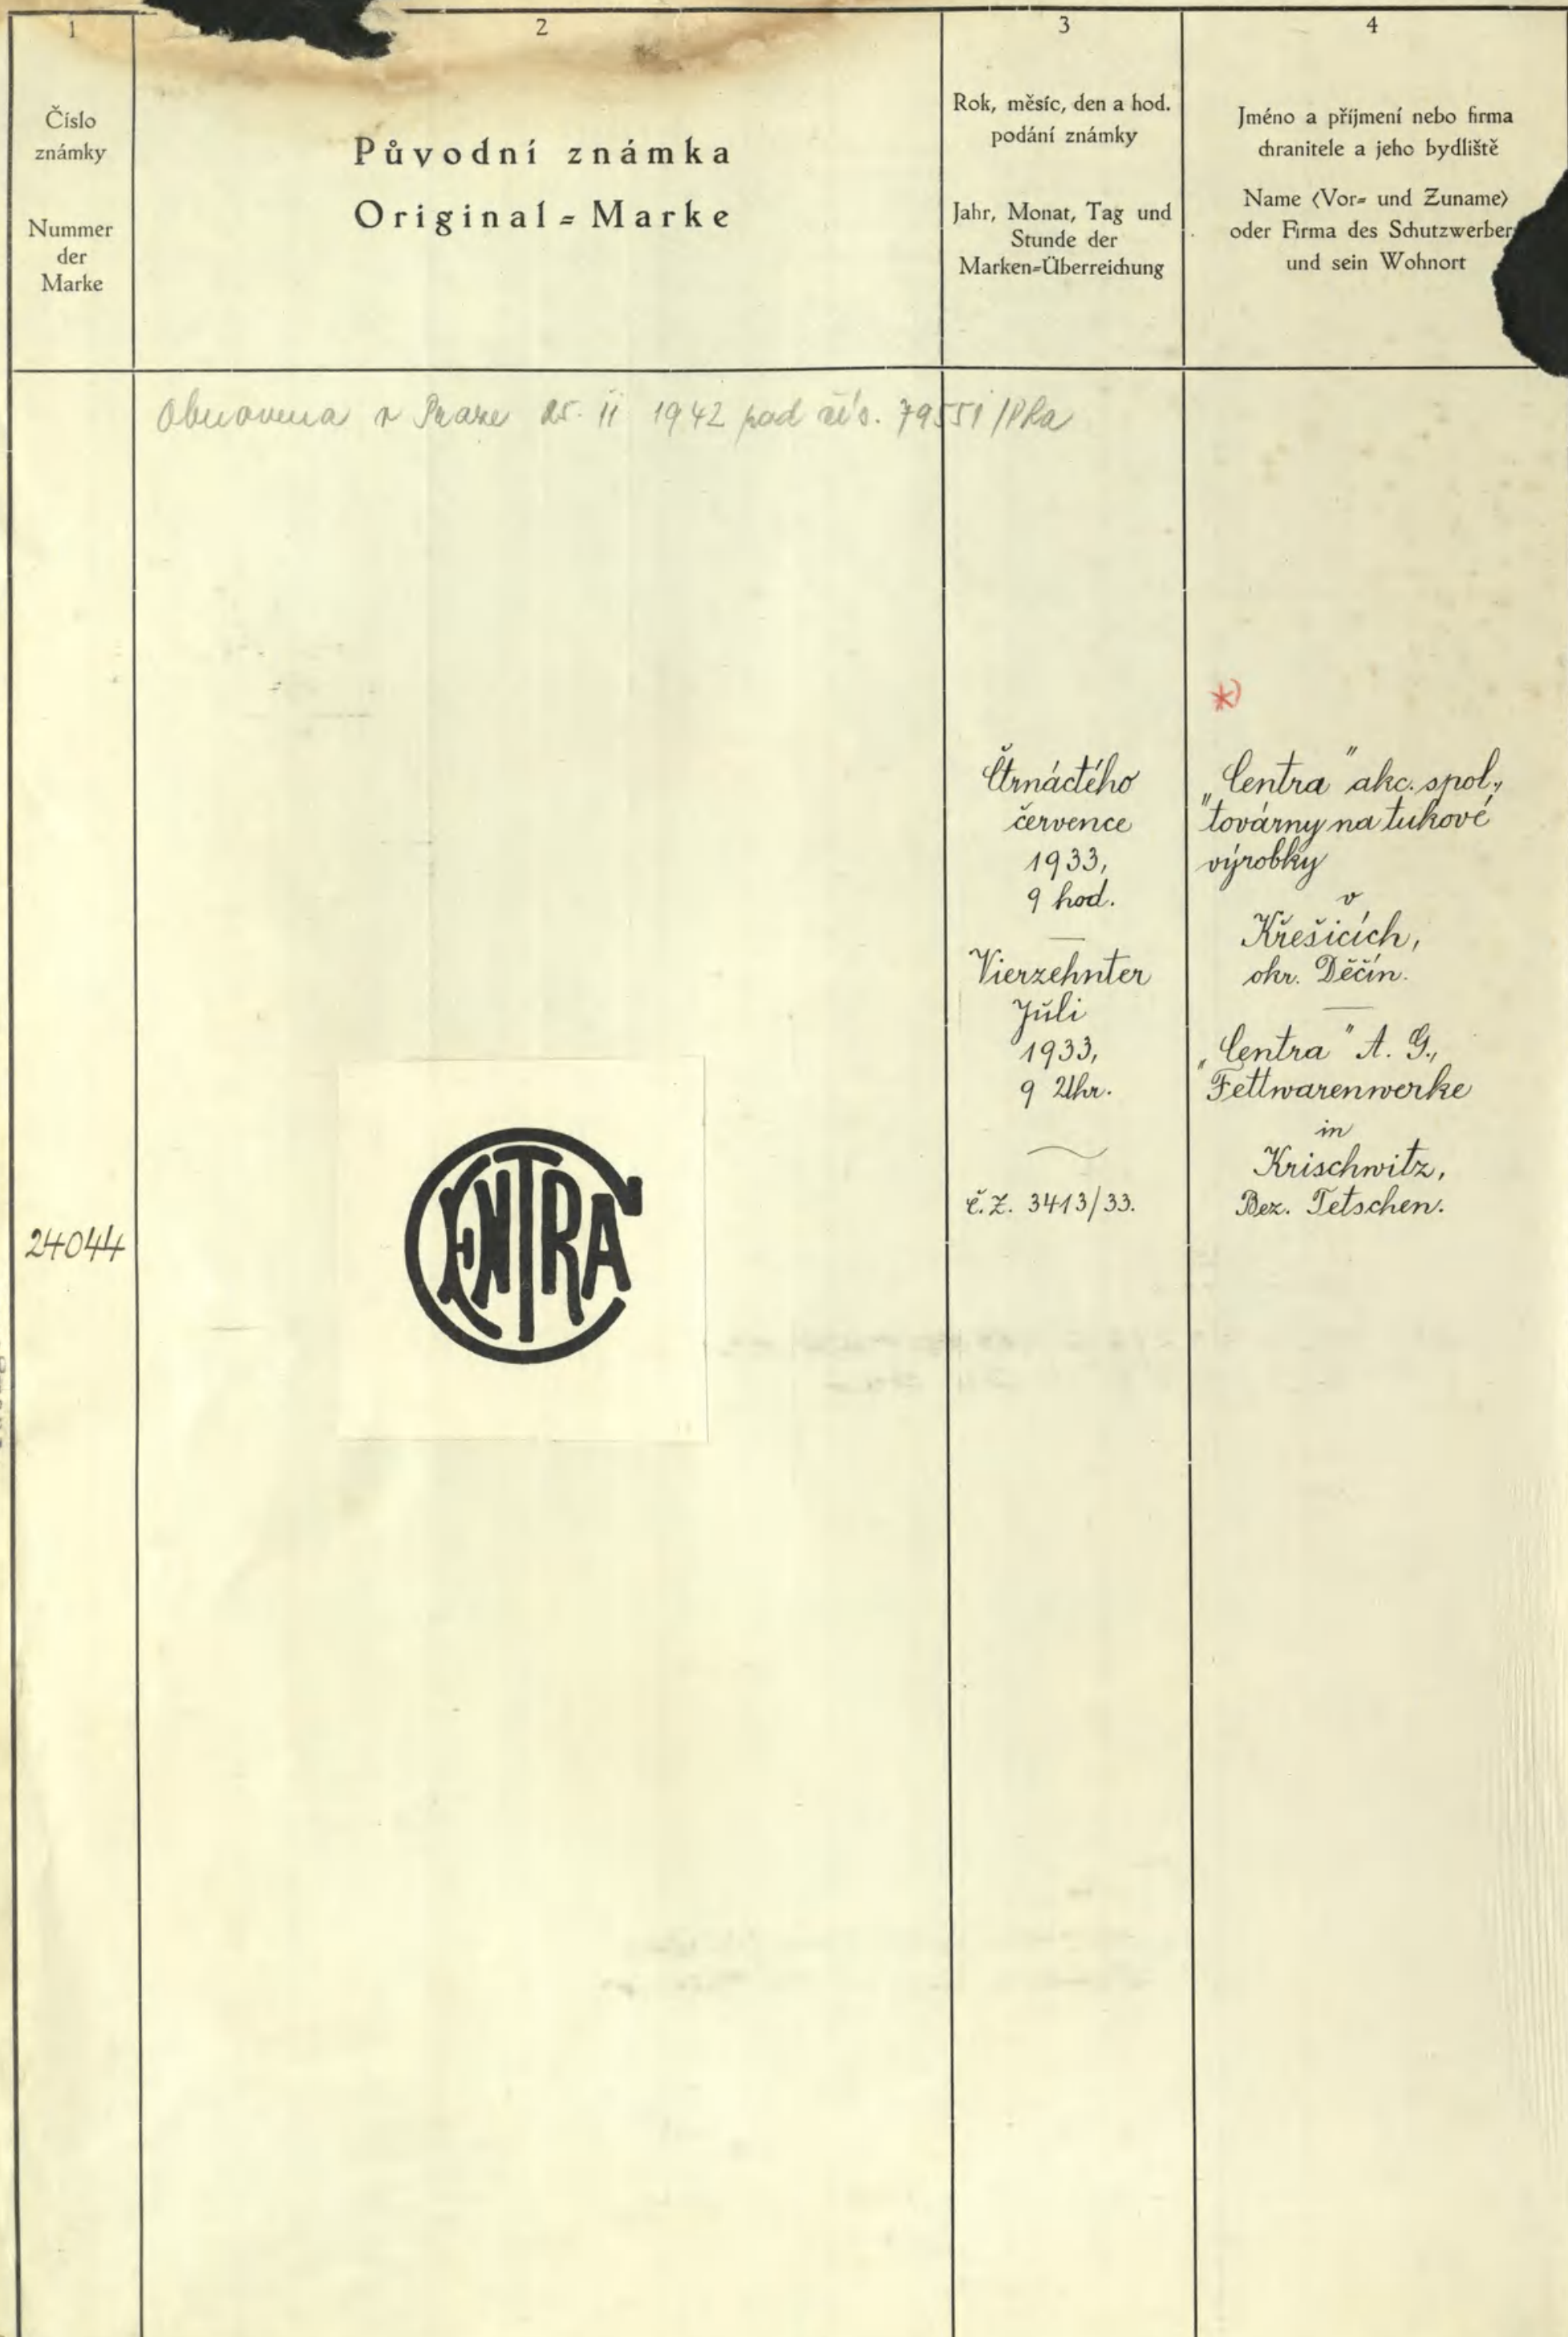 1
2
3
4
Číslo
známky
Nummer
der
Marke
Původní známka
Original=Marke
Rok, měsíc, den a hod.
podání známky
Jahr, Monat, Tag und
Stunde der
Marken=Überreichung
Jméno a příjmení nebo firma
chranitele a jeho bydliště
Name (Vor= und Zuname)
oder Firma des Schutzwerber
und sein Wohnort
Obnovena v Praze 25. II 1942 pod čís. 79551/Pha
24044
CENTRA
Čtrnáctého
července
1933,
9 hod.
Vierzehnter
Juli
1933,
9 Uhr.
č.Z. 3413/33.
*)
„Centra" akc. spol.,
továrny na tukové
výrobky
v
Křešicích,
okr. Děčín.
„Centra" A. G.,
Fettwarenwerke
in
Krischwitz,
Bez. Tetschen.